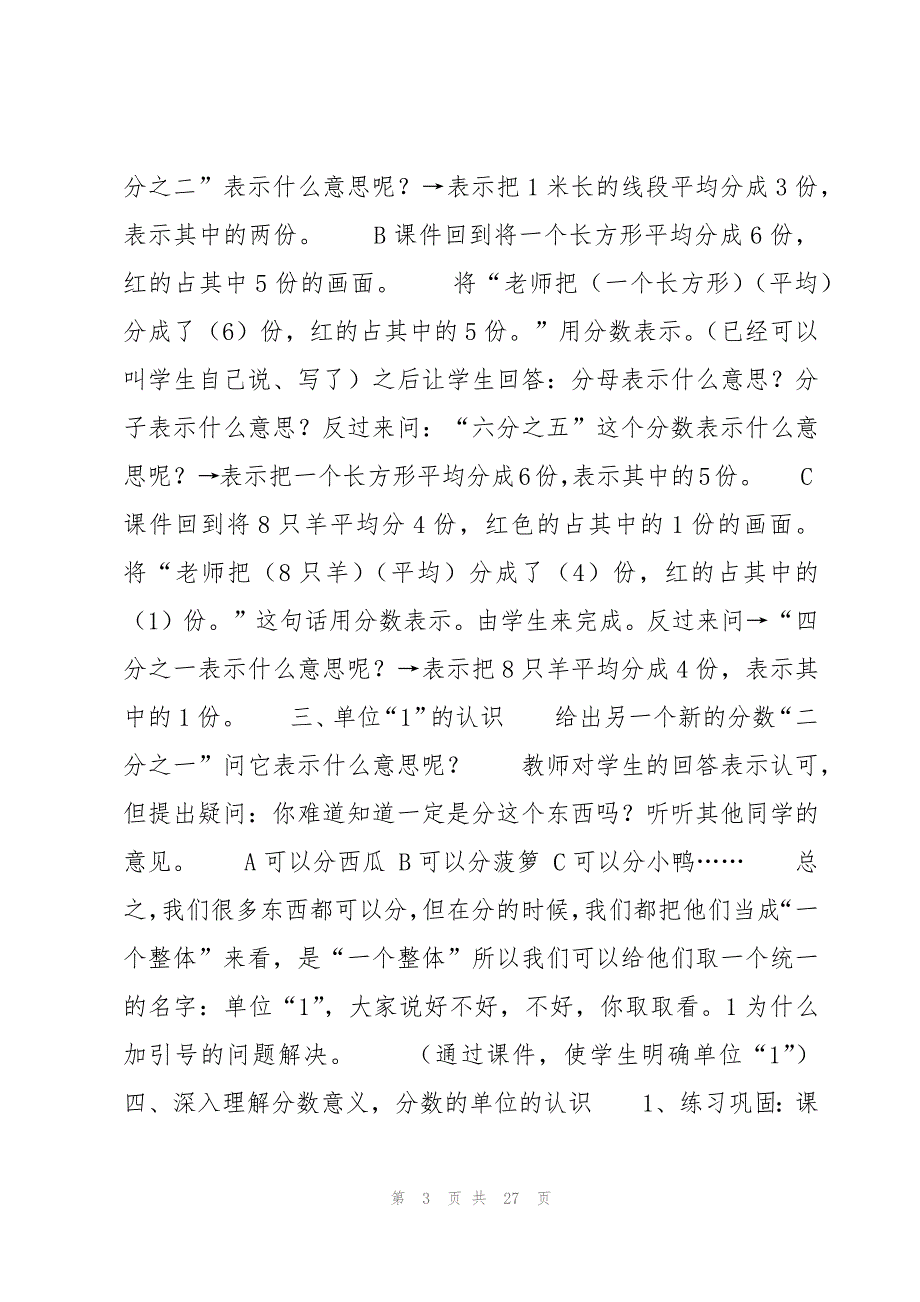 分之二”表示什么意思呢？→表示把 1 米长的线段平均分成 3 份，
表示其中的两份。　　B 课件回到将一个长方形平均分成 6 份，
红的占其中 5 份的画面。　　将“老师把（一个长方形）（平均）
分成了（6）份，红的占其中的 5 份。”用分数表示。（已经可以
叫学生自己说、写了）之后让学生回答：分母表示什么意思？分
子表示什么意思？反过来问：“六分之五”这个分数表示什么意
思呢？→表示把一个长方形平均分成 6 份，表示其中的 5 份。　　C
课件回到将 8 只羊平均分 4 份，红色的占其中的 1 份的画面。
将“老师把（8 只羊）（平均）分成了（4）份，红的占其中的
（1）份。”这句话用分数表示。由学生来完成。反过来问→“四
分之一表示什么意思呢？→表示把 8 只羊平均分成 4 份，表示其
中的 1 份。　　三、单位“1”的认识　　给出另一个新的分数“二
分之一”问它表示什么意思呢？　　教师对学生的回答表示认可，
但提出疑问：你难道知道一定是分这个东西吗？听听其他同学的
意见。　　A 可以分西瓜 B 可以分菠萝 C 可以分小鸭……　　总
之，我们很多东西都可以分，但在分的时候，我们都把他们当成“一
个整体”来看，是“一个整体”所以我们可以给他们取一个统一
的名字：单位“1”，大家说好不好，不好，你取取看。1 为什么
加引号的问题解决。　　（通过课件，使学生明确单位“1”）
四、深入理解分数意义，分数的单位的认识　　1、练习巩固：课
第 3 页 共 27 页